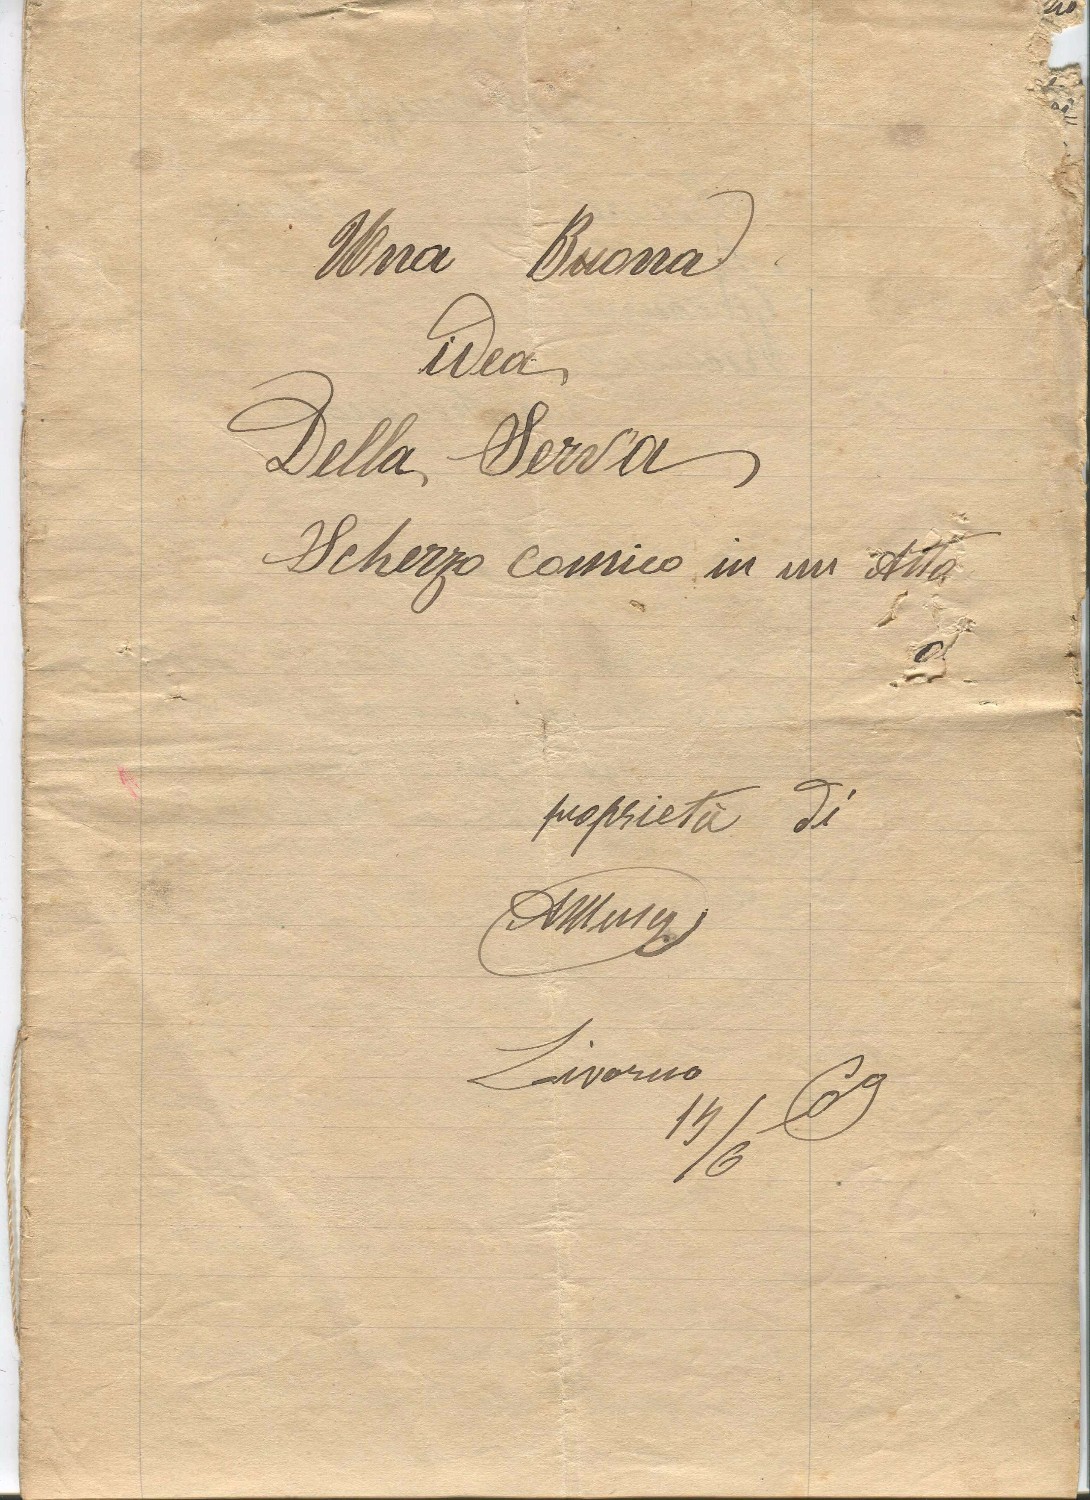 Una Buona
idea
Della Serva
Scherzo comico in un Atto
proprietà di
Livorno